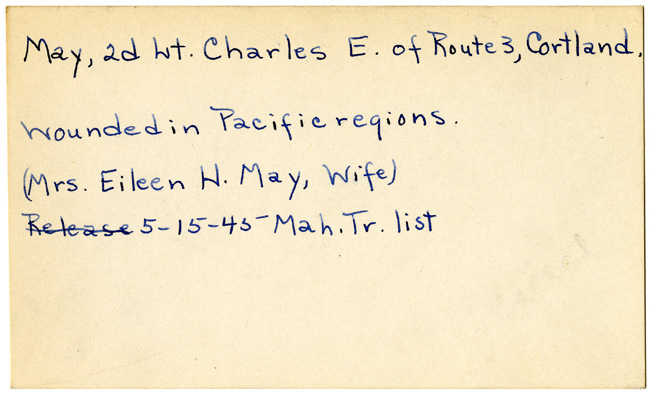 May, 2d Lt. Charles E. of Route 3, Cortland.
Wounded in Pacific regions.
(Mrs. Eileen H. May, Wife)
Release 5-15-45- Mah. Tr. list